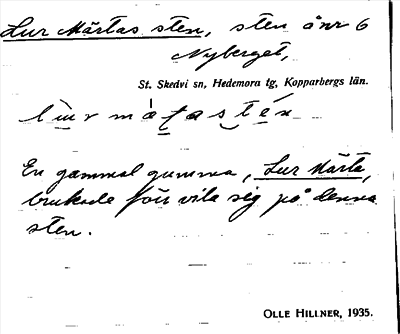 Lur Märtas sten, sten å nr 6
Nyberget,
St. Skedvi sn, Hedemora tg, Kopparbergs län.
En gammal gumma, Lur Märta,
brukade förr vila sig på denna
sten.
OLLE HILLNER, 1935.